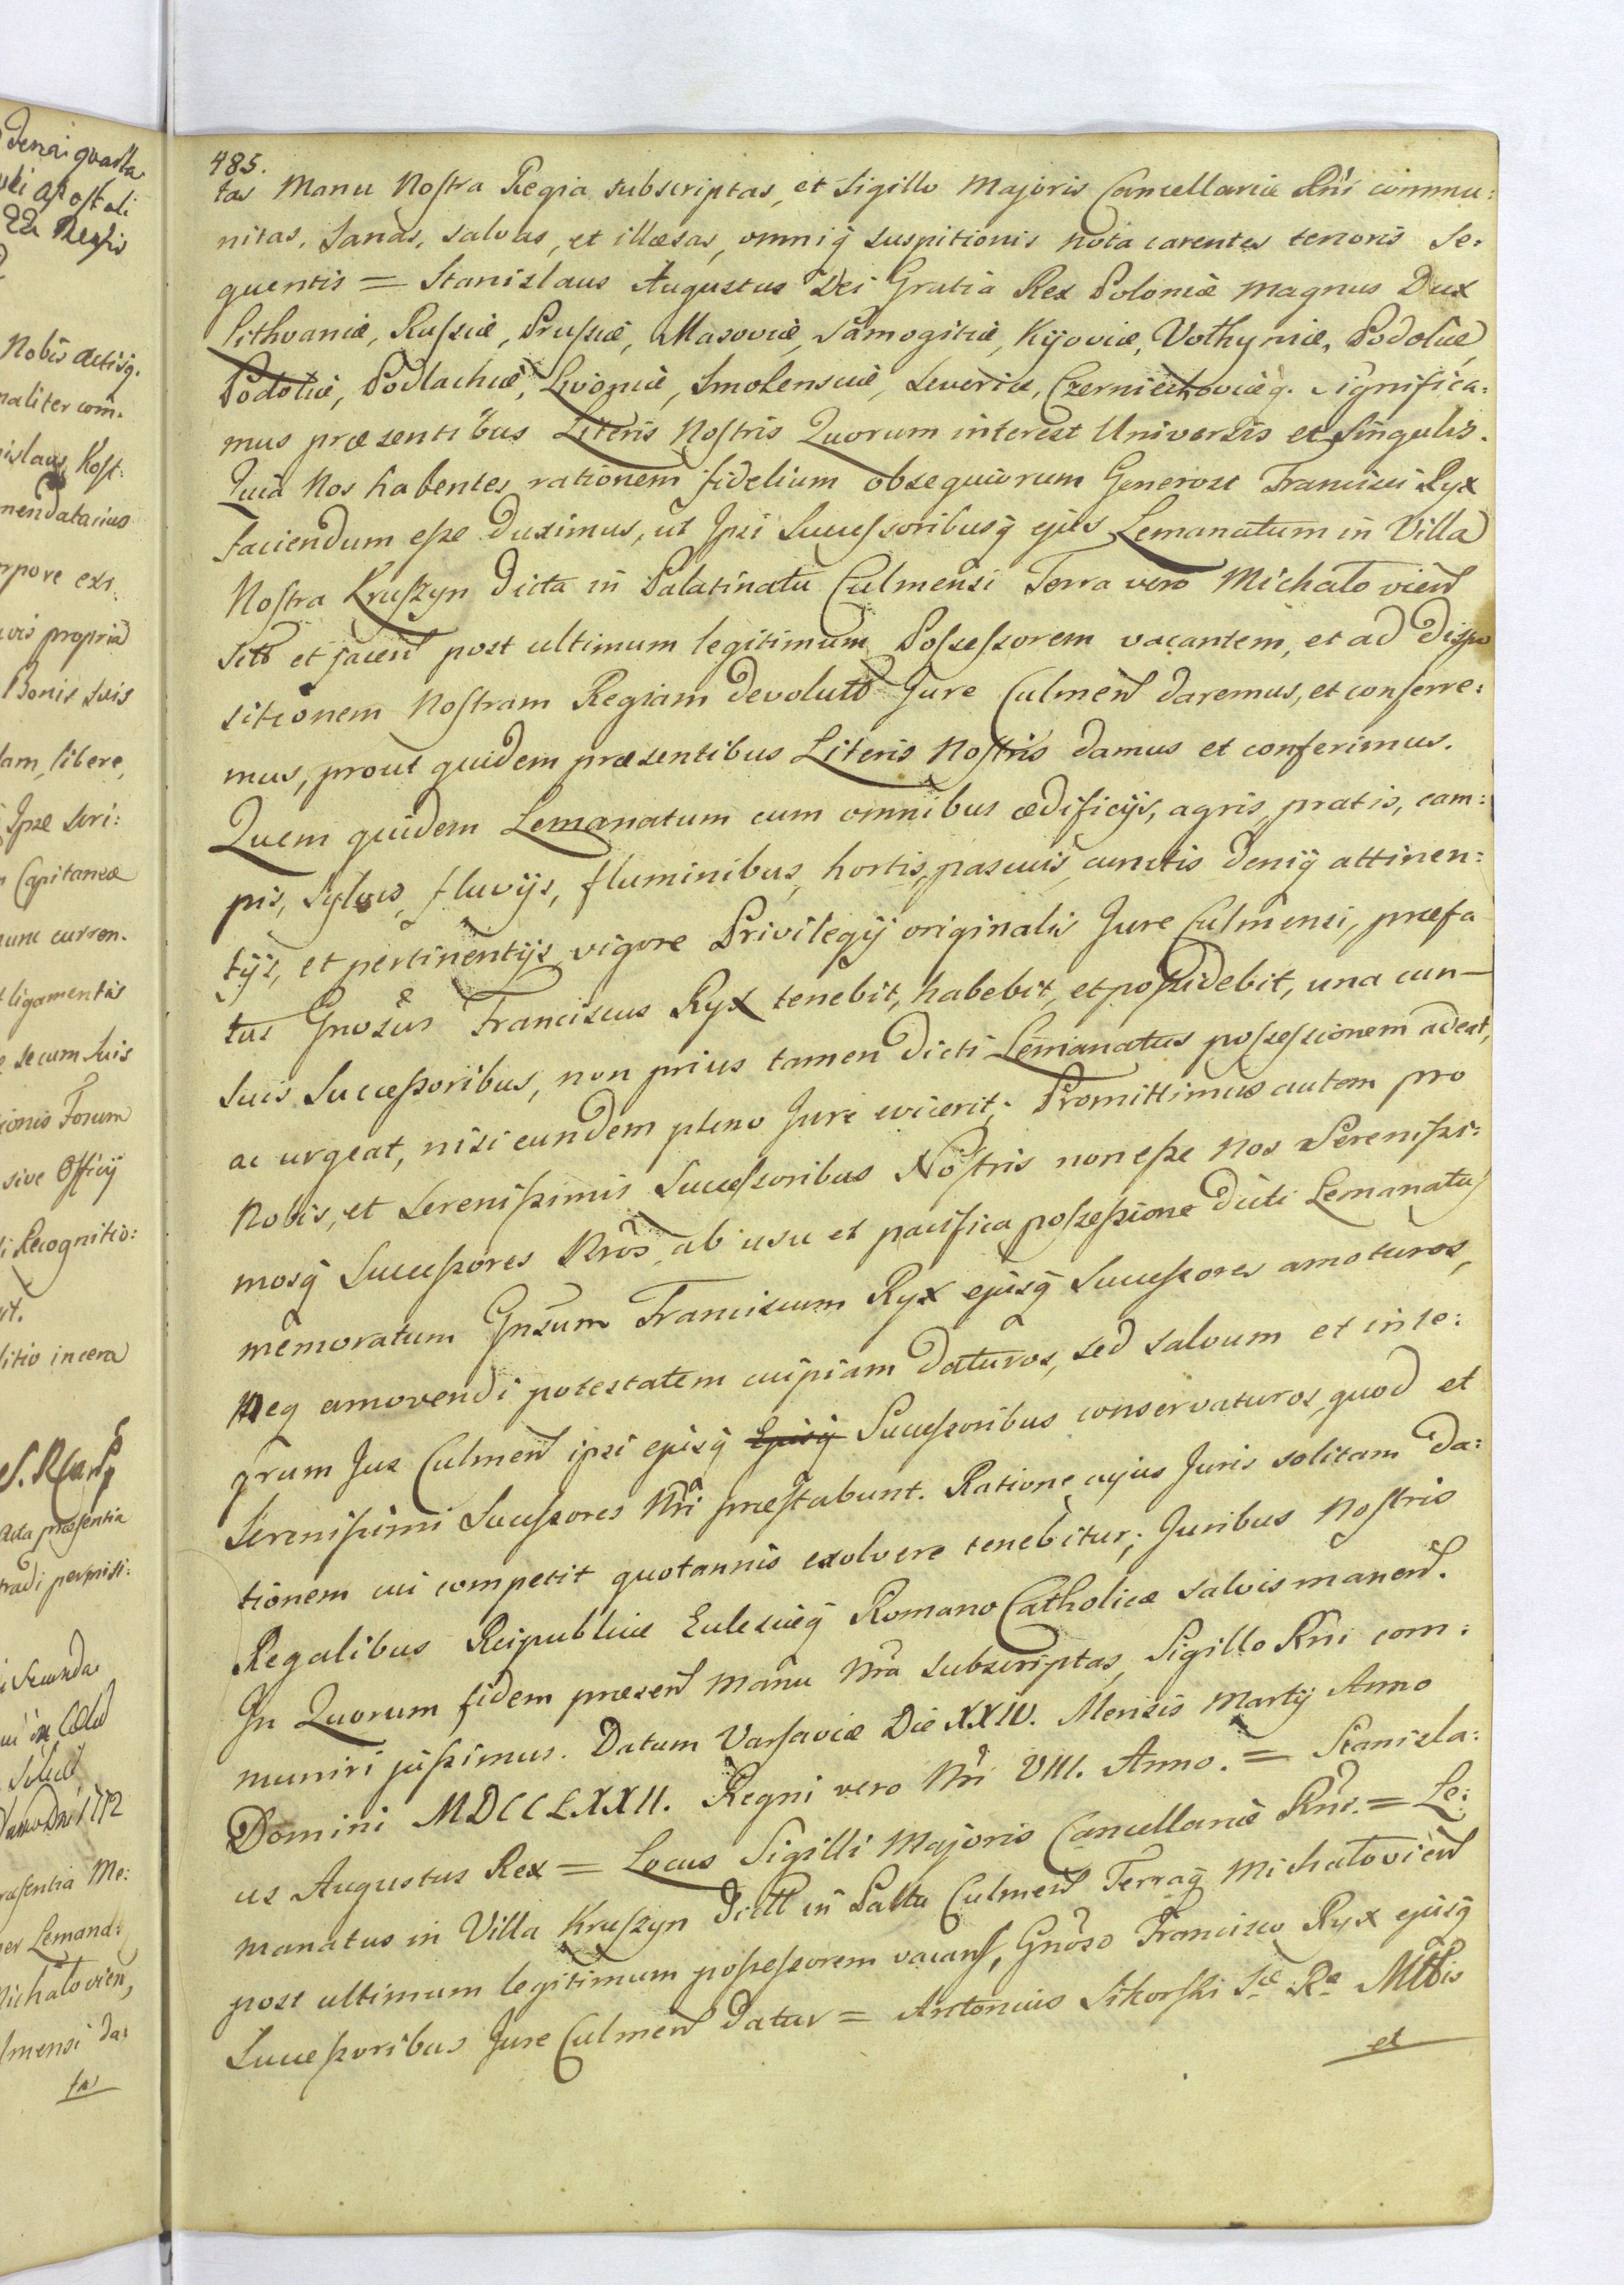 denai quarta
Apostoli
Regis
Nobis Actisq.
naliter com.
nislaus Kost:
mendatarius
rpore exi.
uis propria
Bonis suis
dam, libere,
Ipse scri:
Capitaneæ
nunc curren.
ligamentis
se cum suis
tionis Forum
sive Officij
Recognitio:
litio in cera
Acta præsentia
tradi permisi:
Secunda
ræsentia Me:
per Lemana:
Michalovien,
lmensi da:
tas
485.
tas Manu Nostra Regia subscriptas, et Sigillo Majoris Cancellariæ Rni commu:
nitas, Sanas, salvas, et illæsas, omniq suspitionis nota carentes tenoris Se:
quentis = Stanislaus Augustus Dei Gratia Rex Poloniæ Magnus Dux
Lithvaniæ, Russiæ, Prussiæ, Masoviæ, Samogitiæ, Kijoviæ, Volhyniæ, Podoliæ,
Podoliæ, Podlachiæ, Livoniæ, Smolensciæ, Severiæ, Czerniechoviæq. Significa:
mus præsentibus Literis Nostris Quorum interest Universis et Singulis.
Quia Nos habentes rationem fidelium obsequiorum Generosi Francisci Ryx
faciendum esse duximus, ut Ipsi Successoribusq ejus Lemanatum in Villa
Nostra Kruszyn dicta in Palatinatu Culmensi Terra vero Michalovien
sitt et jacen post ultimum legitimum Possessorem vacantem, et ad dispo
sitionem Nostram Regiam devolutt Jure Culmen daremus, et conferre:
mus, prout quidem præsentibus Literis Nostris damus et conferimus.
Quem quidem Lemanatum cum omnibus ædificijs, agris, pratis, cam:
pis, sylvis, fluvijs, fluminibus, hortis, pascuis, cunctis deniq attinen:
tijs, et pertinentijs vigore Privilegij originalis Jure Culmensi, præfa
tus Gnosus Franciscus Ryx tenebit, habebit, et possidebit, una cun
suis Successoribus, non prius tamen dicti Lemanatus possessionem adeat,
ac urgeat, nisi eundem pleno Jure evicerit; Promittimus autem pro
Nobis, et Serenissimis Successoribus Nostris non esse Nos Serenissi:
mosq Successores Nros, ab usu et pacifica possessione dicti Lemanatus
memoratum Gnsum Franciscum Ryx ejusq Successores amoturos,
Neq amovendi potestatem cuipiam daturos, sed salvum et inte:
grum Jus Culmen ipsi ejusq Ejusq Successoribus conservaturos, quod et
Serenissimi Successores Nri præstabunt. Ratione cujus Juris solitam da:
tionem cui competit quotannis exolvere tenebitur; Juribus Nostris
Regalibus Reipublicæ Eclesiæq Romano Catholicæ salvis manen.
In Quorum fidem præsen Manu Nra subscriptas, Sigillo Rni com:
muniri jussimus. Datum Varsaviæ Die XXIV. Mensis Martij Anno
Domini MDCCLXXII. Regni vero Nri VIII. Anno. = Stanisla:
us Augustus Rex = Locus Sigilli Majoris Cancellariæ Rni. = Le:
manatus in Villa Kruszyn Sitt in Palttu Culmen Terraq Michalovien
post ultimum legitimum possessorem vacans, Gnoso Francisco Ryx ejusq
Successoribus Jure Culmen datur = Antonius Sikorski Sæ Ræ Mttis
et